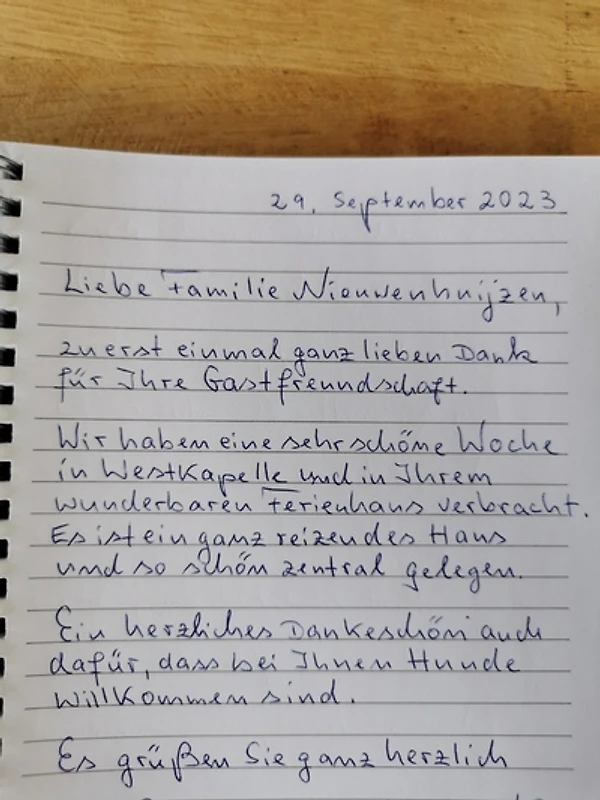 29. September 2023
Liebe Familie Nieuwenhuijzen,
zuerst einmal ganz lieben Dank
für Ihre Gastfreundschaft.
Wir haben eine sehr schöne Woche
in Westkapelle und in Ihrem
wunderbaren Ferienhaus verbracht.
Es ist ein ganz reizendes Haus
und so schön zentral gelegen.
Ein herzliches Dankeschön auch
dafür, dass bei Ihnen Hunde
willkommen sind.
Es grüßen Sie ganz herzlich